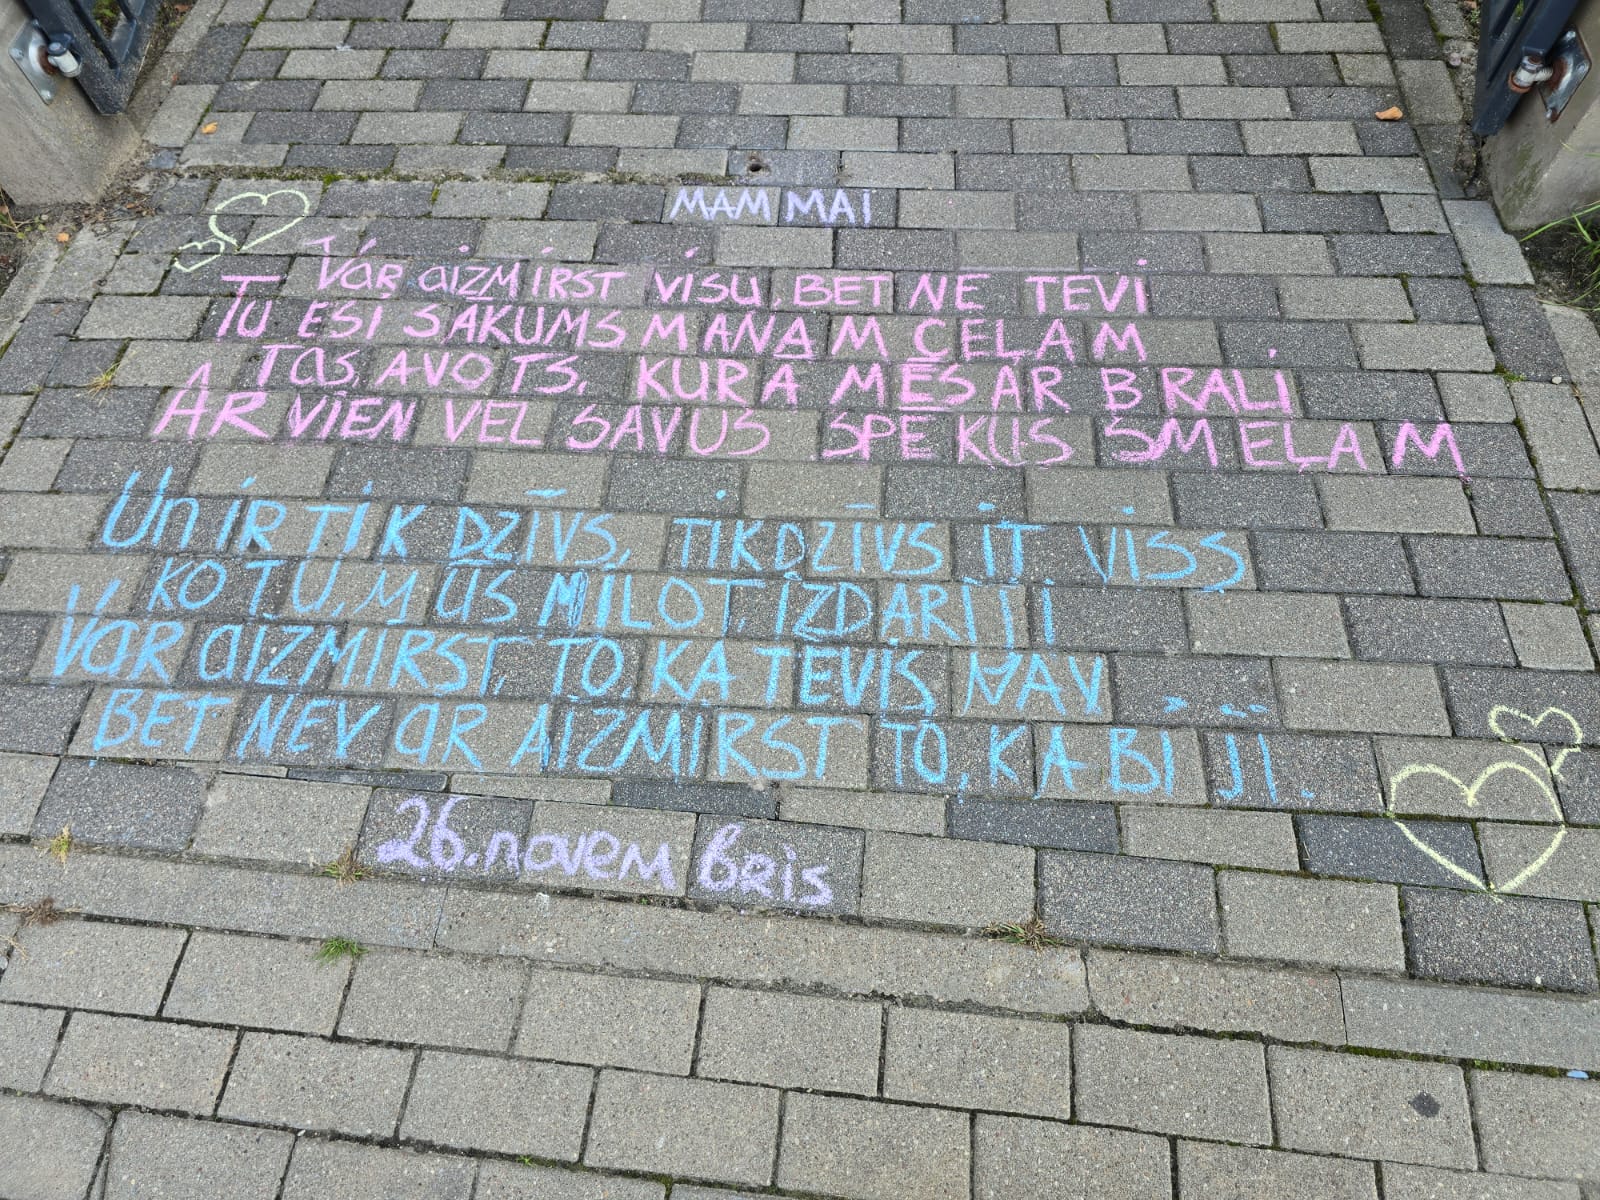 MAMMAI
Var aizmirst visu, BET NE TEVI
TU ESi SĀKUMS MANAM CEĻAM
TAS, AVOTS, KURĀ MĒS AR BRĀLI
ARVIEN VĒL SAVUS SPĒKUS SMEĻAM
Un iR TiK DZĪVS, TIKDZĪVS iT viSS
KO TU, MŪS MĪLOT, IZDARĪJI
VAR aiZMIRST TO, KA TEVIS NAV
BET NEVAR AIZMIRST TO, KA BIJI.
26. novembris